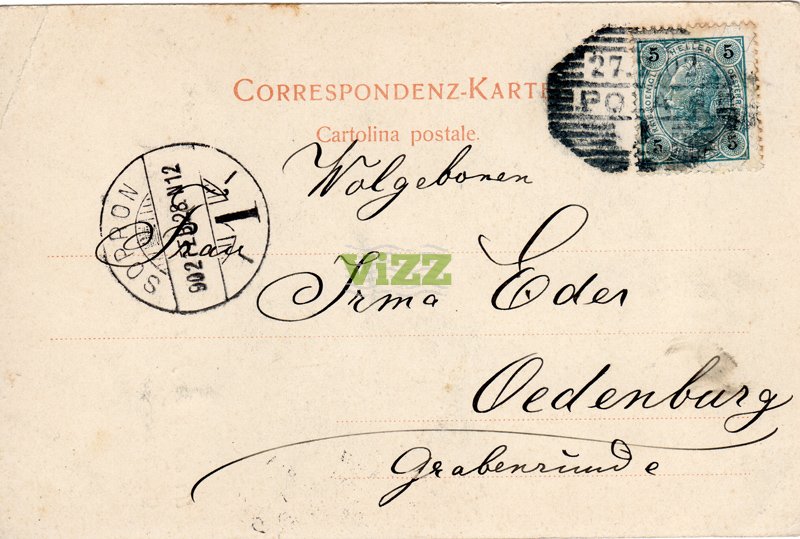 CORRESPONDENZ-KARTE
Cartolina postale.
5 HELLER 5
5 5
27.
PO
SOPRON
902
28 N12
I
Wolgeboren
Frau
Irma Eder
ViZZ
Oedenburg
Grabenrunde